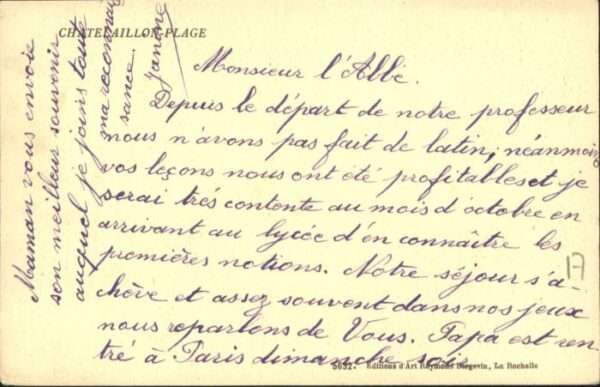 CHATELAILLON-PLAGE
Monsieur l'Abbé.
Depuis le départ de notre professeur
nous n'avons pas fait de latin, néanmoins
vos leçons nous ont été profitables et je
serai trés contente au mois d'octobre en
arrivant au lycée d'en connaître les
premières notions. Notre séjour s'a-
chève et assez souvent dans nos jeux
nous reparlons de Vous. Papa est ren-
tré à Paris dimanche soir.
Maman vous envoie
son meilleur souvenir
auquel je joins toute
ma reconnais
sance.
Janine
17
Editions d'Art Raymond Bergevin, La Rochelle